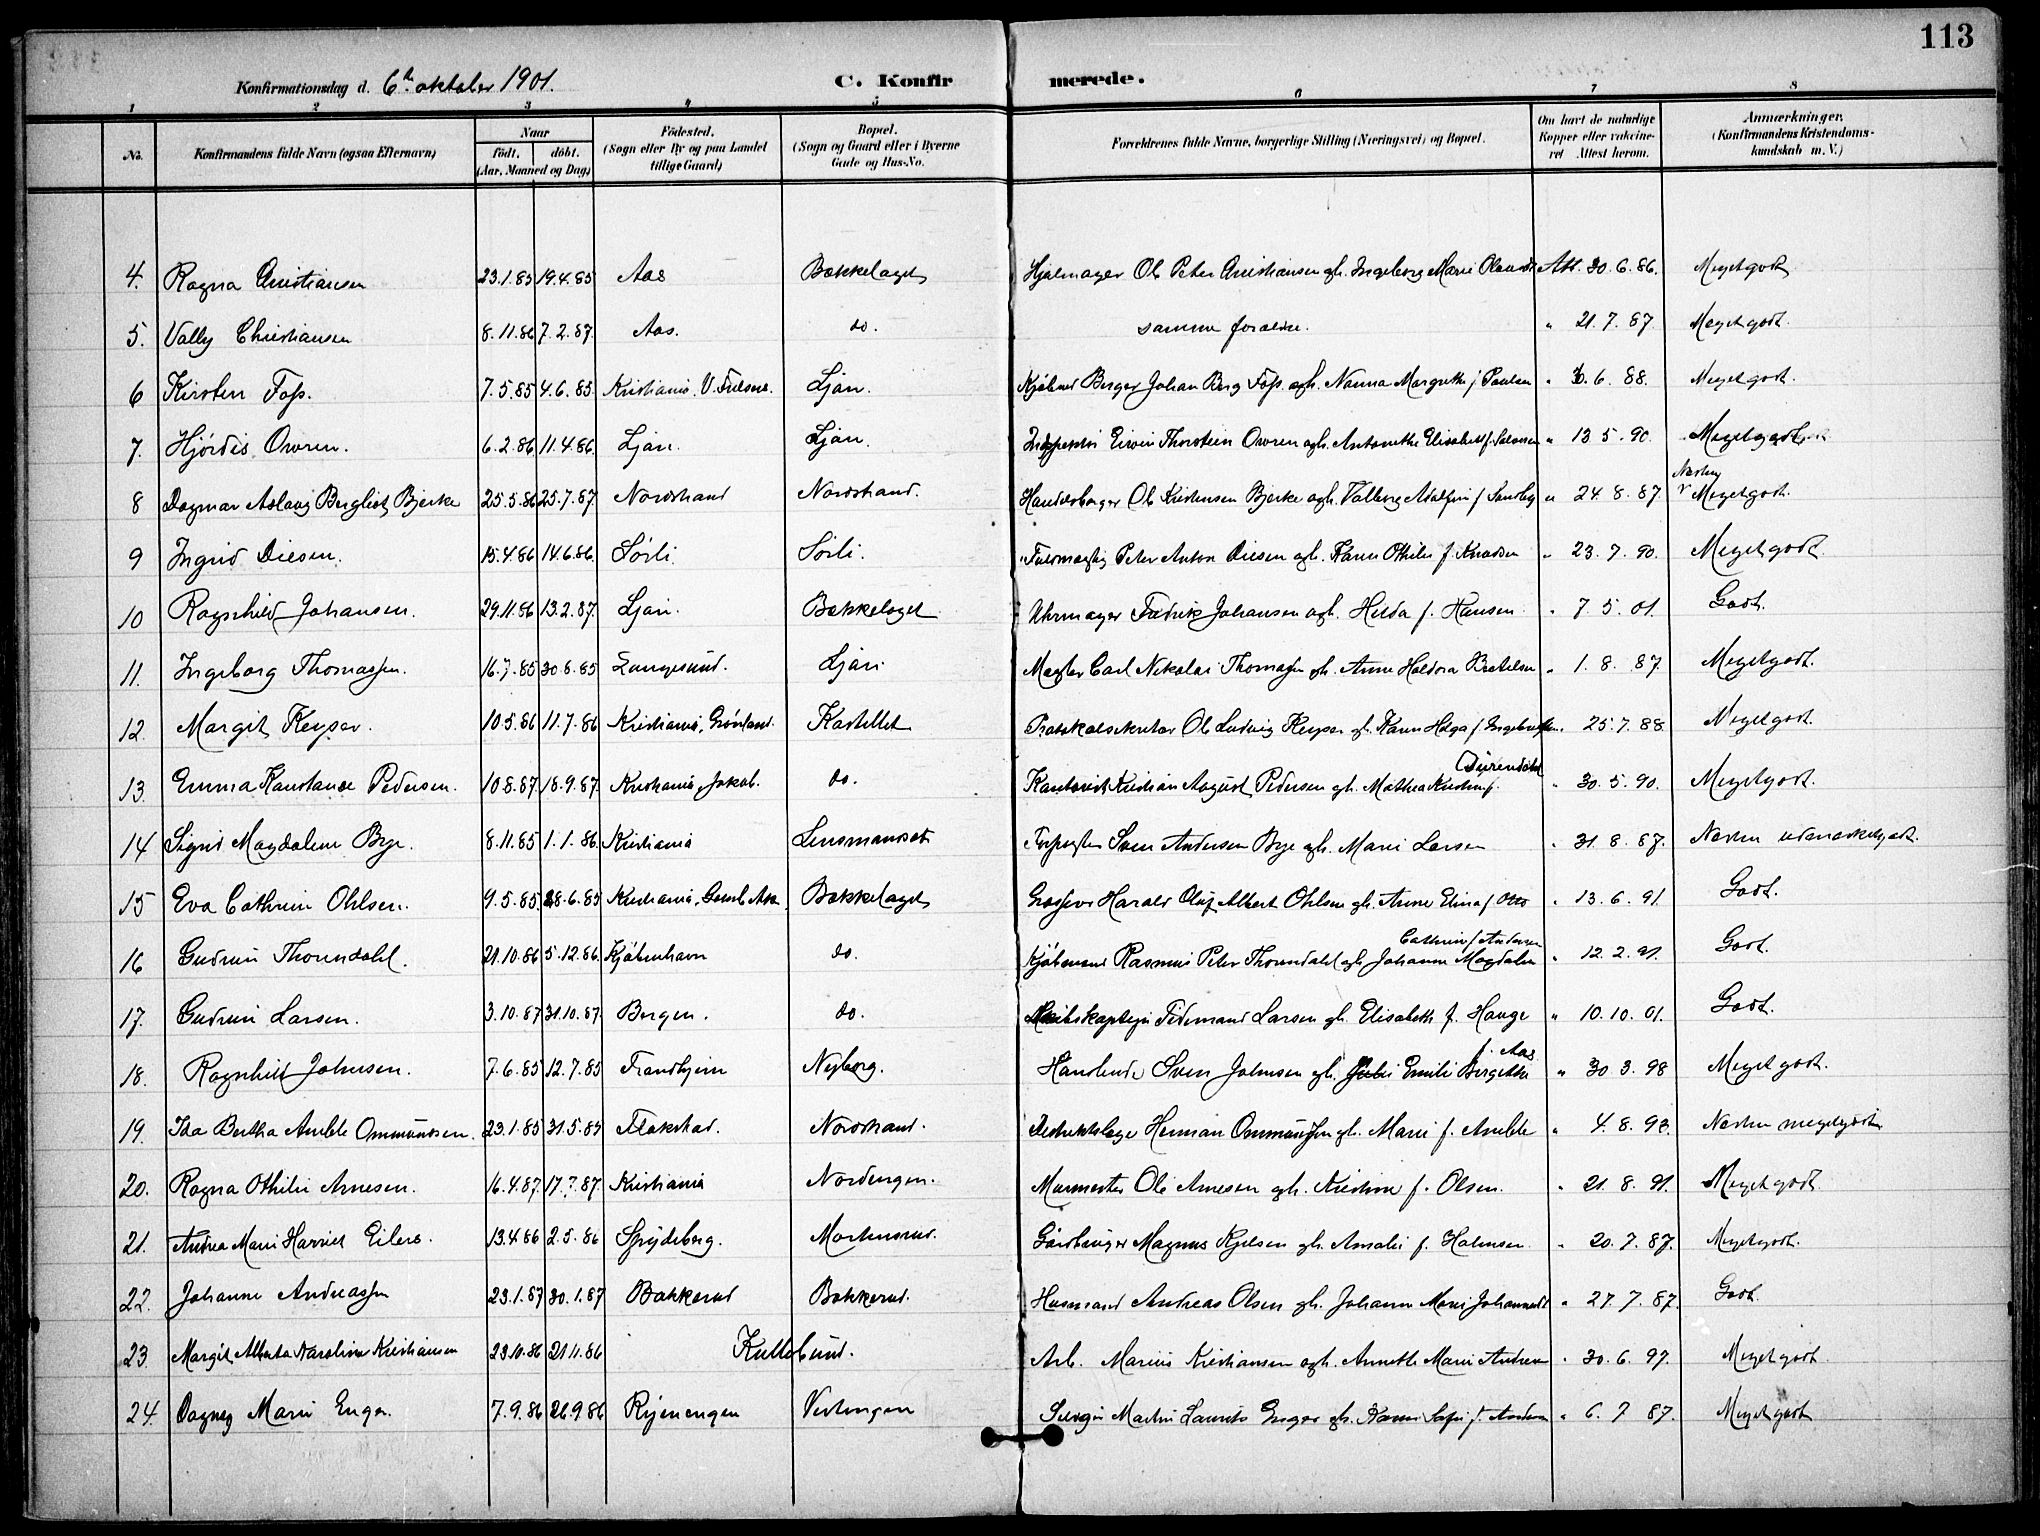 113
Konfirmationsdag d. 6te oktober 1901. C. Konfirmerede.
1 2 3 4 5 6 7 8
No. Konfirmandens fulde Navn (ogsaa Efternavn) Naar født. døbt. (Aar, Maaned og Dag) Fødested. (Sogn eller By og paa Landet tillige Gaard) Bopæl. (Sogn og Gaard eller i Byerne Gade og Hus-No. Forældrenes fulde Navne, borgerlige Stilling (Næringsvei) og Bopæl. Om havt de naturlige Kopper eller vakcineret Attest herom. Anmærkninger. (Konfirmandens Kristendomskundskab m. V.)
4. Ragna Christiansen 23.1.85 19.4.85 Aas Bækkelaget Hjulmager Ole Peter Christiansen gh. Ingeborg Marie Att. 30.6.86. Meget godt
5. Vally Christiansen 8.11.86 7.2.87. Aas. do. samme forældre. " 21.7.87. Meget godt.
6 Kirsten Foss. 7.5.85 4.6.85. Kristiania. Ljan. Kjøbmd Berger Johan Berg Foss. ogh. Nanna Margrethe f. Paulsen " 6.88. Meget godt.
7. Hjørdis Owren. 6.2.86 11.4.86. Ljan. Ljan. Thorstein Owren ogh. Antonette Elisabeth f. " 13 5.90. Meget godt
8 Dagmar Aslaug Bergliot Bjerke 25.5.86 25.7.87. Nordstrand Nordstrand. Ole Kristensen Bjerke ogh. Valborg f. " 24.8.87. Næsten Meget godt.
9 Ingrid Diesen. 15.4.86 14.6.86. Sørli. Sørli. Fuldmægtig Peter Anton Diesen ogh. Karen Othilie f. Knudsen " 23.7.90. Meget godt
10 Ragnhild Johansen. 29.11.86 13.2.87. Ljan. Bækkelaget Uhrmager Fredrik Johansen ogh. Hilda f. Hansen " 7.5.01. Godt.
11. Ingeborg Thomassen. 16.7.85 30.8.85 Langesund. Ljan Mægler Carl Nikolai Thomassen gh. Anne Haldora " 1.8.87. Meget godt.
12. Margit Keyser. 10.5.86 11.7.86 Kristiania, Grønland. Kastellet Protokolsekretær Ole Ludvig Keyser gh. Karen Helga f. . 25.7.88. Meget godt.
13. Emma Konstanse Pedersen. 10.8.87. 18.9.87. Kristiania, Jakob. do. Kontorist Kristian August Pedersen gh. Mathea f. " 30.5.90. Meget godt.
14 Sigrid Magdalene Bye. 8.11.85 1.1.86. Kristiania Lensmandset Sven Andersen Bye gh. Marie Larsen " 31.8.87. Næsten udmerket godt.
15 Eva Cathrine Ohlsen. 9.5.85. 28.6.85 Kristiania, Gamle Aker Bækkelaget Grosserer Harald Oluf Albert Ohlsen gh. Anne Elina f. " 13.6.91. Godt.
16 Gudrun Thorndahl. 21.10.86 5.12.86. Kjøbenhavn do. Kjøbmand Rasmus Peter Thorndahl gh. Johanne Magdalene Cathrine f. Andersen " 12.2.91. Godt.
17. Gudrun Larsen. 3.10.87 31.10.87. Bergen. do. Skibskaptejn Tidemand Larsen gh. Elisabeth f. Hauge " 10.10.01. Godt.
18. Ragnhild Johnsen. 7.6.85 12.7.85 Trondhjem Nyborg. Handlende Sven Johnsen gh. Emilie Birgitte f. Aas " 30 3.98 Meget godt.
19. Ida Bertha Amble Ommundsen. 23.1.85 31.5.85 Flakstad. Nordstrand. Distriktslæge Herman Ommundsen gh. Marie f. Amble " 4.8.93. Næsten meget godt
20. Ragna Othilie Arnesen. 16.4.87. 17.?.87. Kristiania Nordengen. Murmester Ole Arnesen gh. Kristine f. Olsen. " 21.8.91. Meget godt
21. Andrea Marie Harriet Eilers. 13.4.86 2.5.86 Spydeberg. Mortensrud. Magnus Kjelsen gh. Amalie f. Halvorsen. " 20.7.87. Meget godt.
22. Johanne Andreassen 23.1.87 30.1.87 Bakkerud Bakkerud. Husmand Andreas Olsen gh. Johanne Marie Johannesdt " 27.7.87. Godt.
23. Margit Alberta Karoline Kristiansen 23.10.86 21.11.86 Kullebund. Arb. Marius Kristiansen ogh. Annette Marie Andersen " 30.6.97. Meget godt.
24. Dagny Marie Enger. 7.9.86 26.9.86 Ryenengen Vestengen Martin Laurits Enger gh. Karen Sofie f. Andersen " 6.7 87. Meget godt